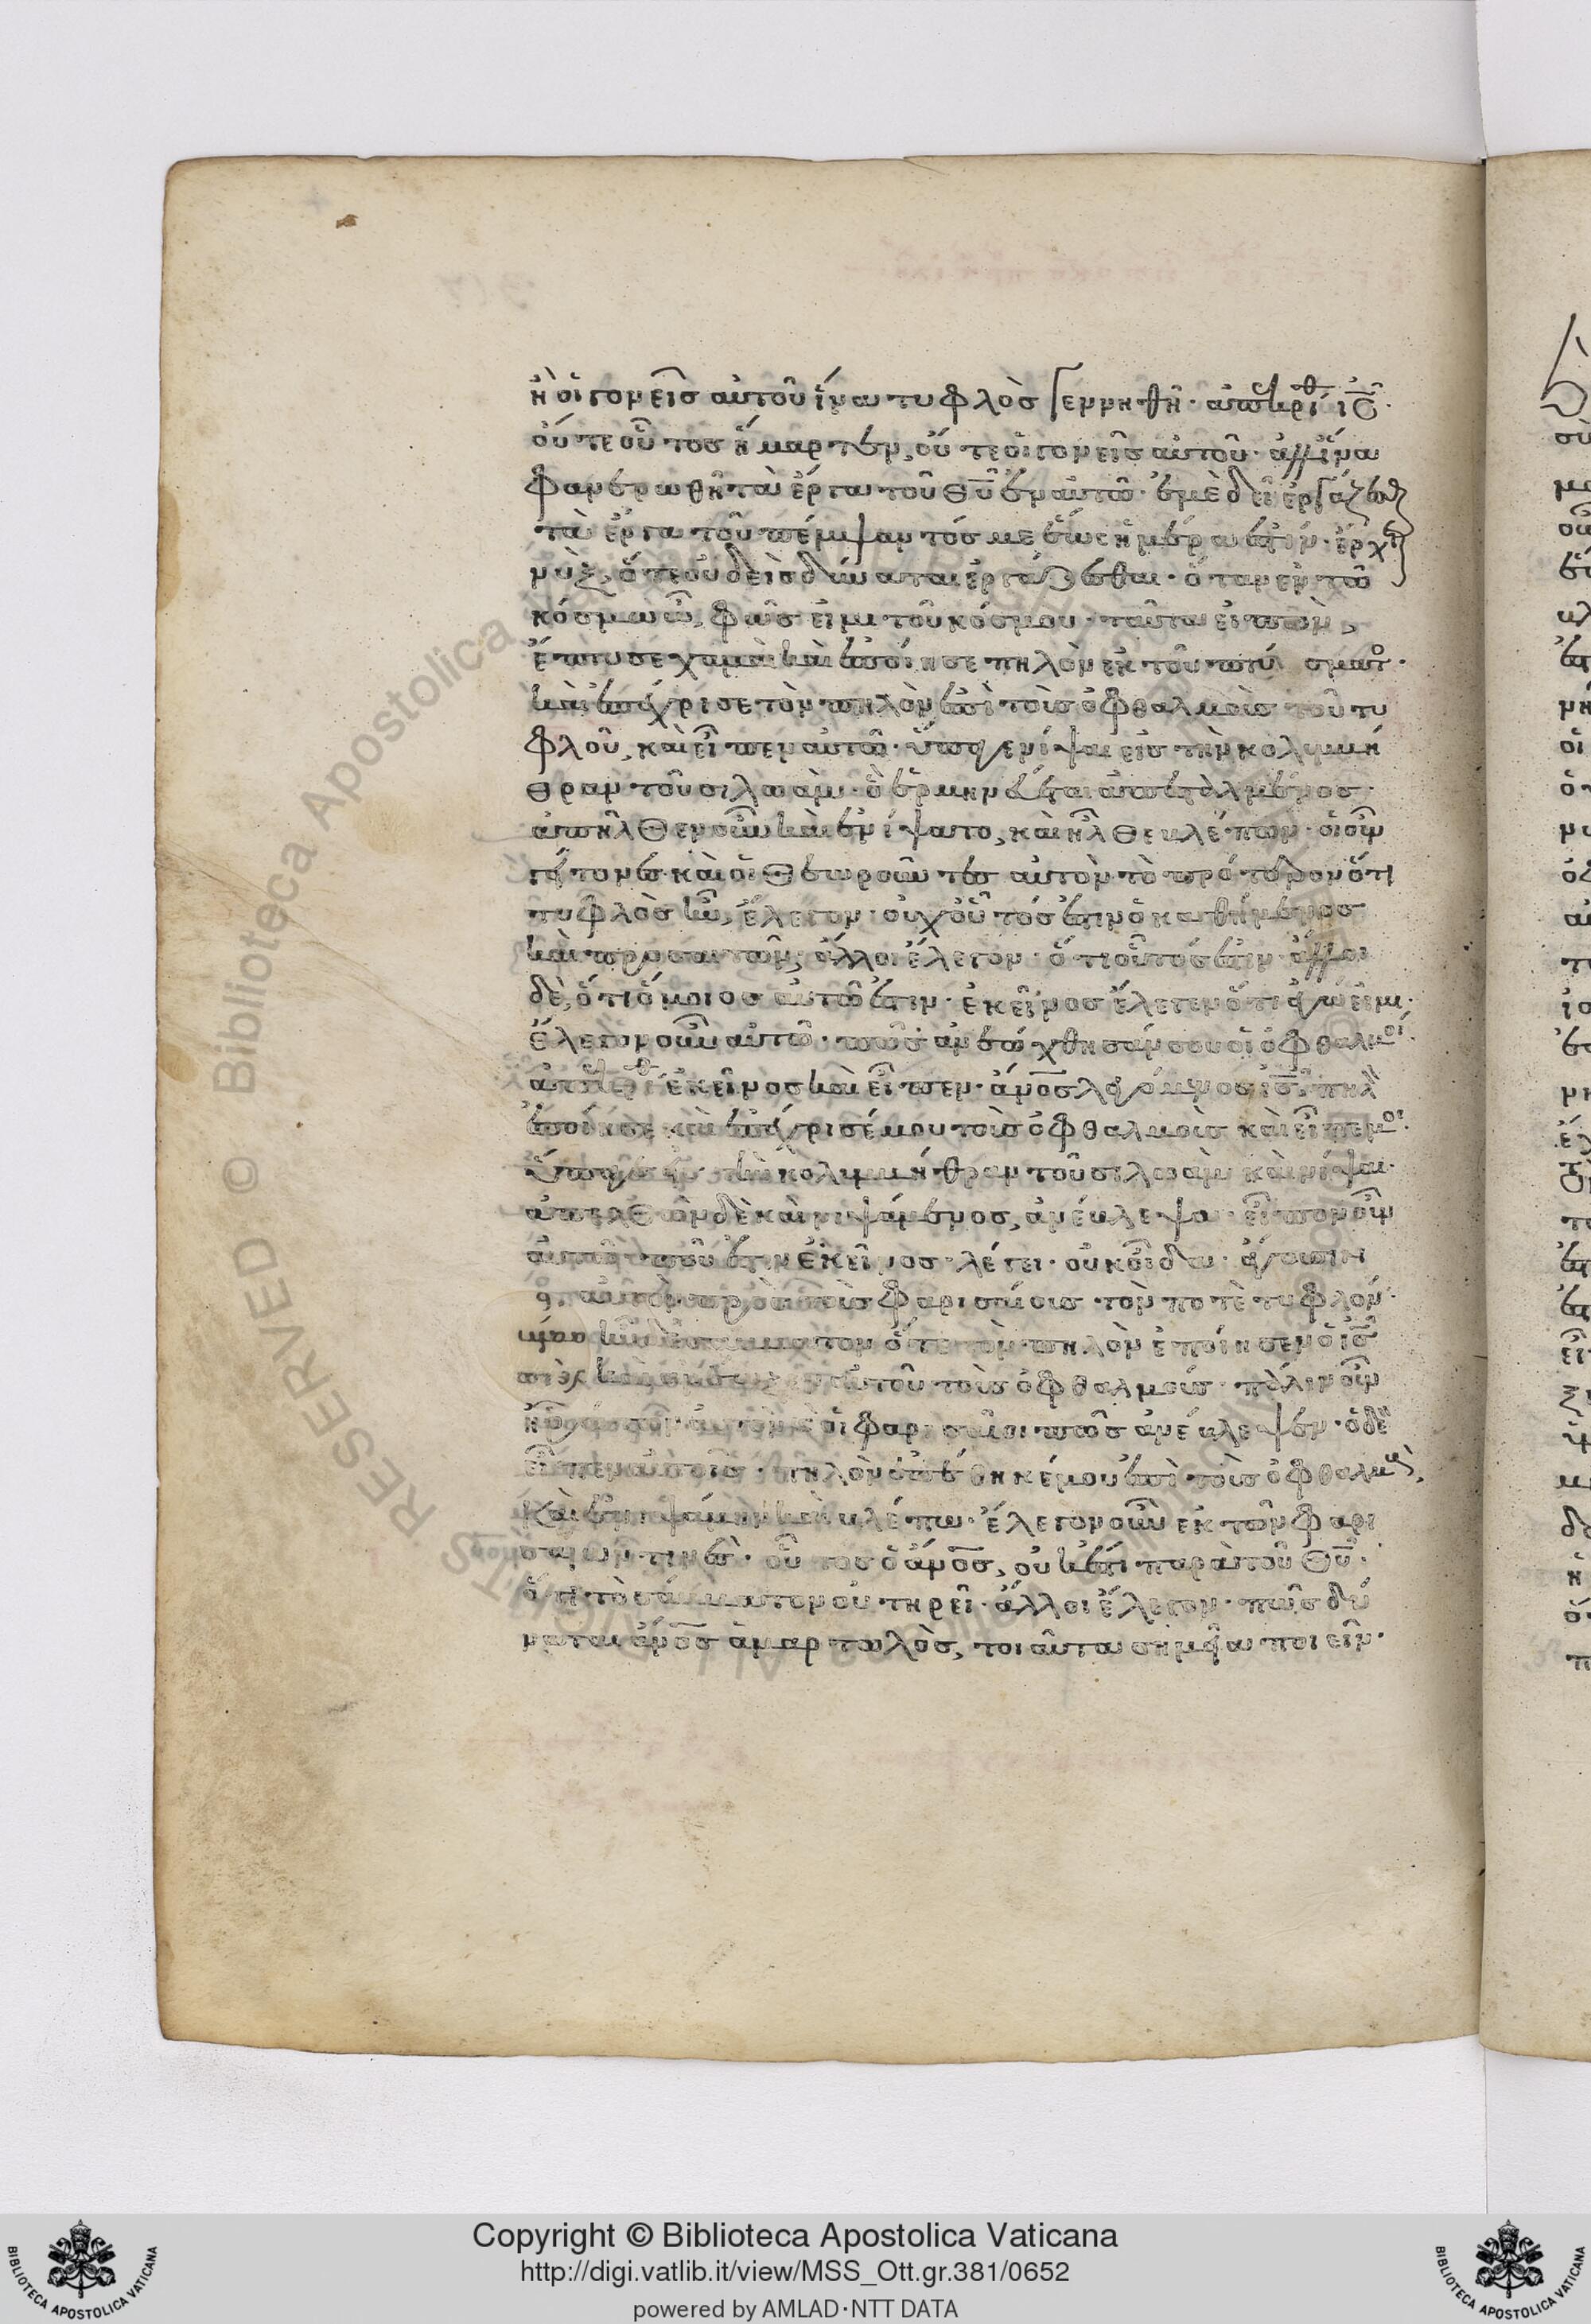 ἢ οἱ γονεῖς αὐτοῦ ἵνα τυφλὸς γεννηθῆ· ἀπεκρίθ ις̅·
οὔτε οὗτος ἥμαρτεν, οὔτε οἱ γονεῖς αὐτοῦ· ἀλλ' ἵνα
φανερωθῆ τὰ ἔργα τοῦ θυ̅ ἐν αὐτῶ· ἐμὲ δεῖ ἐργάζεσθαι
τὰ ἔργα τοῦ πέμψαντός με ἕως ἡμέρα ἐστίν· ἔρχεται
νὺξ, ὅτε οὐδεὶς δύναται ἐργάζεσθαι· ὅταν ἐν τῶ
κόσμω ὦ, φῶς εἰμι τοῦ κόσμου· ταῦτα εἰπὼν,
ἔπτυσε χαμαὶ καὶ ἐποίησε πηλὸν ἐκ τοῦ πτύσματο·
καὶ ἐπέχρισε τὸν πηλὸν ἐπὶ τοὺς ὀφθαλμοὺς τοῦ τυ
φλοῦ, καὶ εἶπεν αὐτῶ· ὕπαγε νίψαι εἰς τὴν κολυμβή
θραν τοῦ σιλωάμ· ὃ ἑρμηνεύεται ἀπεσταλμένος·
ἀπῆλθεν οὖν καὶ ἐνίψατο, καὶ ἦλθε βλέπων· οἱ οὖν
γείτονες καὶ οἱ θεωροῦντες αὐτὸν τὸ πρότερον ὅτι
τυφλὸς ἦν, ἔλεγον· οὐχ οὗτός ἐστιν ὁ καθήμενος
καὶ προσαιτῶν, ἄλλοι ἔλεγον· ὅτι οὗτός ἐστιν· ἄλλοι
δὲ, ὅτι ὅμοιος αὐτῶ ἐστιν· ἐκεῖνος ἔλεγεν ὅτι ἐγώ εἰμι·
ἔλεγον οὖν αὐτῶ· πῶς ἀνεώχθησάν σου οἱ ὀφθαλμοί·
ἀπεκρίθ ἐκεῖνος καὶ εἶπεν· ἀνος̅ λεγόμενος ις̅ πηλ
ἐποίησε καὶ ἐπέχρισέ μου τοὺς ὀφθαλμοὺς καὶ εἶπέ μοι·
ὕπαγε κολυμβήθραν τοῦ σιλωὰμ καὶ νίψαι·
ἀπελθὼν δὲ καὶ νιψάμενος, ἀνέβλεψα· εἶπον οὖν
αὐτῶ· ποῦ ἐστιν ἐκεῖνος· λέγει· οὐκ οἶδα· ἄγουσιν
αὐτὸν πρὸς τοὺς φαρισαίους τὸν ποτὲ τυφλόν·
ἦν δὲ σάββατον ὅτε τὸν πηλὸν ἐποίησεν ὁ ις̅
καὶ αὐτοῦ τοὺς ὀφθαλμούς· πάλιν οὖν
αὐτὸν οἱ φαρισαῖοι πῶς ἀνέβλεψεν· ὁ δὲ
εἶπεν αὐτοῖς· πηλὸν ἐπέθηκέ μου ἐπὶ τοὺς ὀφθαλμοὺς,
καὶ ἐνιψάμην καὶ βλέπω· ἔλεγον οὖν ἐκ τῶν φαρι
σαίων τινὲς· οὗτος ὁ ἄνος̅, οὐκ ἔστι παρὰ τοῦ θυ̅·
ὅτι τὸ σάββατον οὐ τηρεῖ· ἄλλοι ἔλεγον· πῶς δύ
ναται ἄνος̅ ἁμαρτωλὸς, τοιαῦτα σημεῖα ποιεῖν·
Copyright © Biblioteca Apostolica Vaticana
http://digi.vatlib.it/view/MSS_Ott.gr.381/0652
powered by AMLAD·NTT DATA